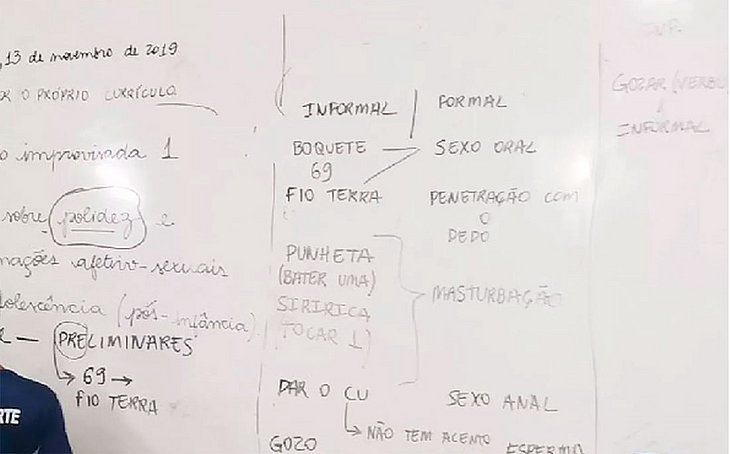 , 13 de novembro de 2019
O PRÓPRIO CURRÍCULO
o improvisada 1
sobre polidez e
mações afetivo-sexuais
dolescência (pós-infância).
— PRELIMINARES
→ 69 →
FIO TERRA
RTE
INFORMAL | FORMAL
BOQUETE — SEXO ORAL
69
FIO TERRA PENETRAÇÃO COM
O
DEDO
PUNHETA
(BATER UMA)
SIRIRICA
TOCAR 1)
MASTURBAÇÃO
DAR O CU SEXO ANAL
→ NÃO TEM ACENTO
GOZO ESPERMA
INF.
GOZAR (VERBO
INFORMAL